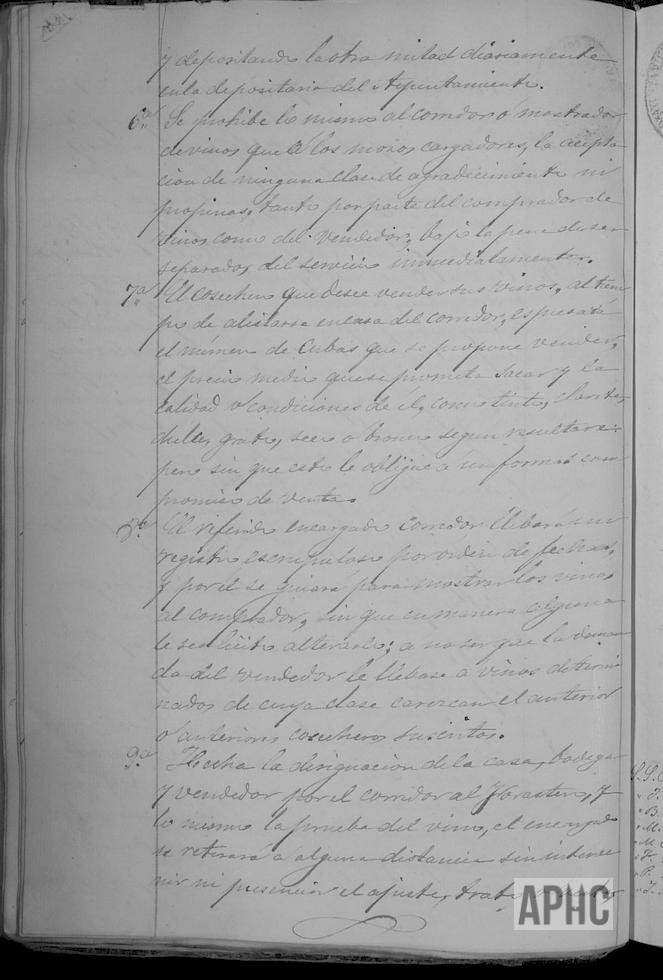 y depositando la otra mitad diariamente
en la depositaria del Ayuntamiento.
6ª Se prohibe lo mismo al corredor ó mostrador
de vinos que á los mozos cargadores, la acepta
cion de ninguna clase de agradecimiento ni
propinas, tanto por parte del comprador de
vinos como del vendedor, bajo la pena de ser
separados del servicio inmediatamente.
7ª El cosechero que desee vender sus vinos, al tiem
po de alistarse en casa del corredor, espresará
el número de Cubas que se propone vender,
el precio medio que se prometa sacar y la
calidad ó condiciones de el, como tinto, clarete,
dulce, grato, seco o bronco segun resultare:
pero sin que esto le obligue á un formal com
promiso de venta.
8ª El referido encargado Corredor llebará un
registro escrupuloso por orden de fechas,
y por el se guiará para mostrar los vinos
al comprador, sin que en manera alguna
le sea licito alterarlo; a no ser que la deman
da del vendedor le llebase a vinos determi
nados de cuya clase carezcan el anterior
ó anteriores cosecheros suscritos.
9ª Hecha la designacion de la casa, bodega
y vendedor por el corredor al forastero, y
lo mismo la prueba del vino, el encargado
se retirará á alguna distancia sin interve
nir ni presenciar el ajuste,
APHC